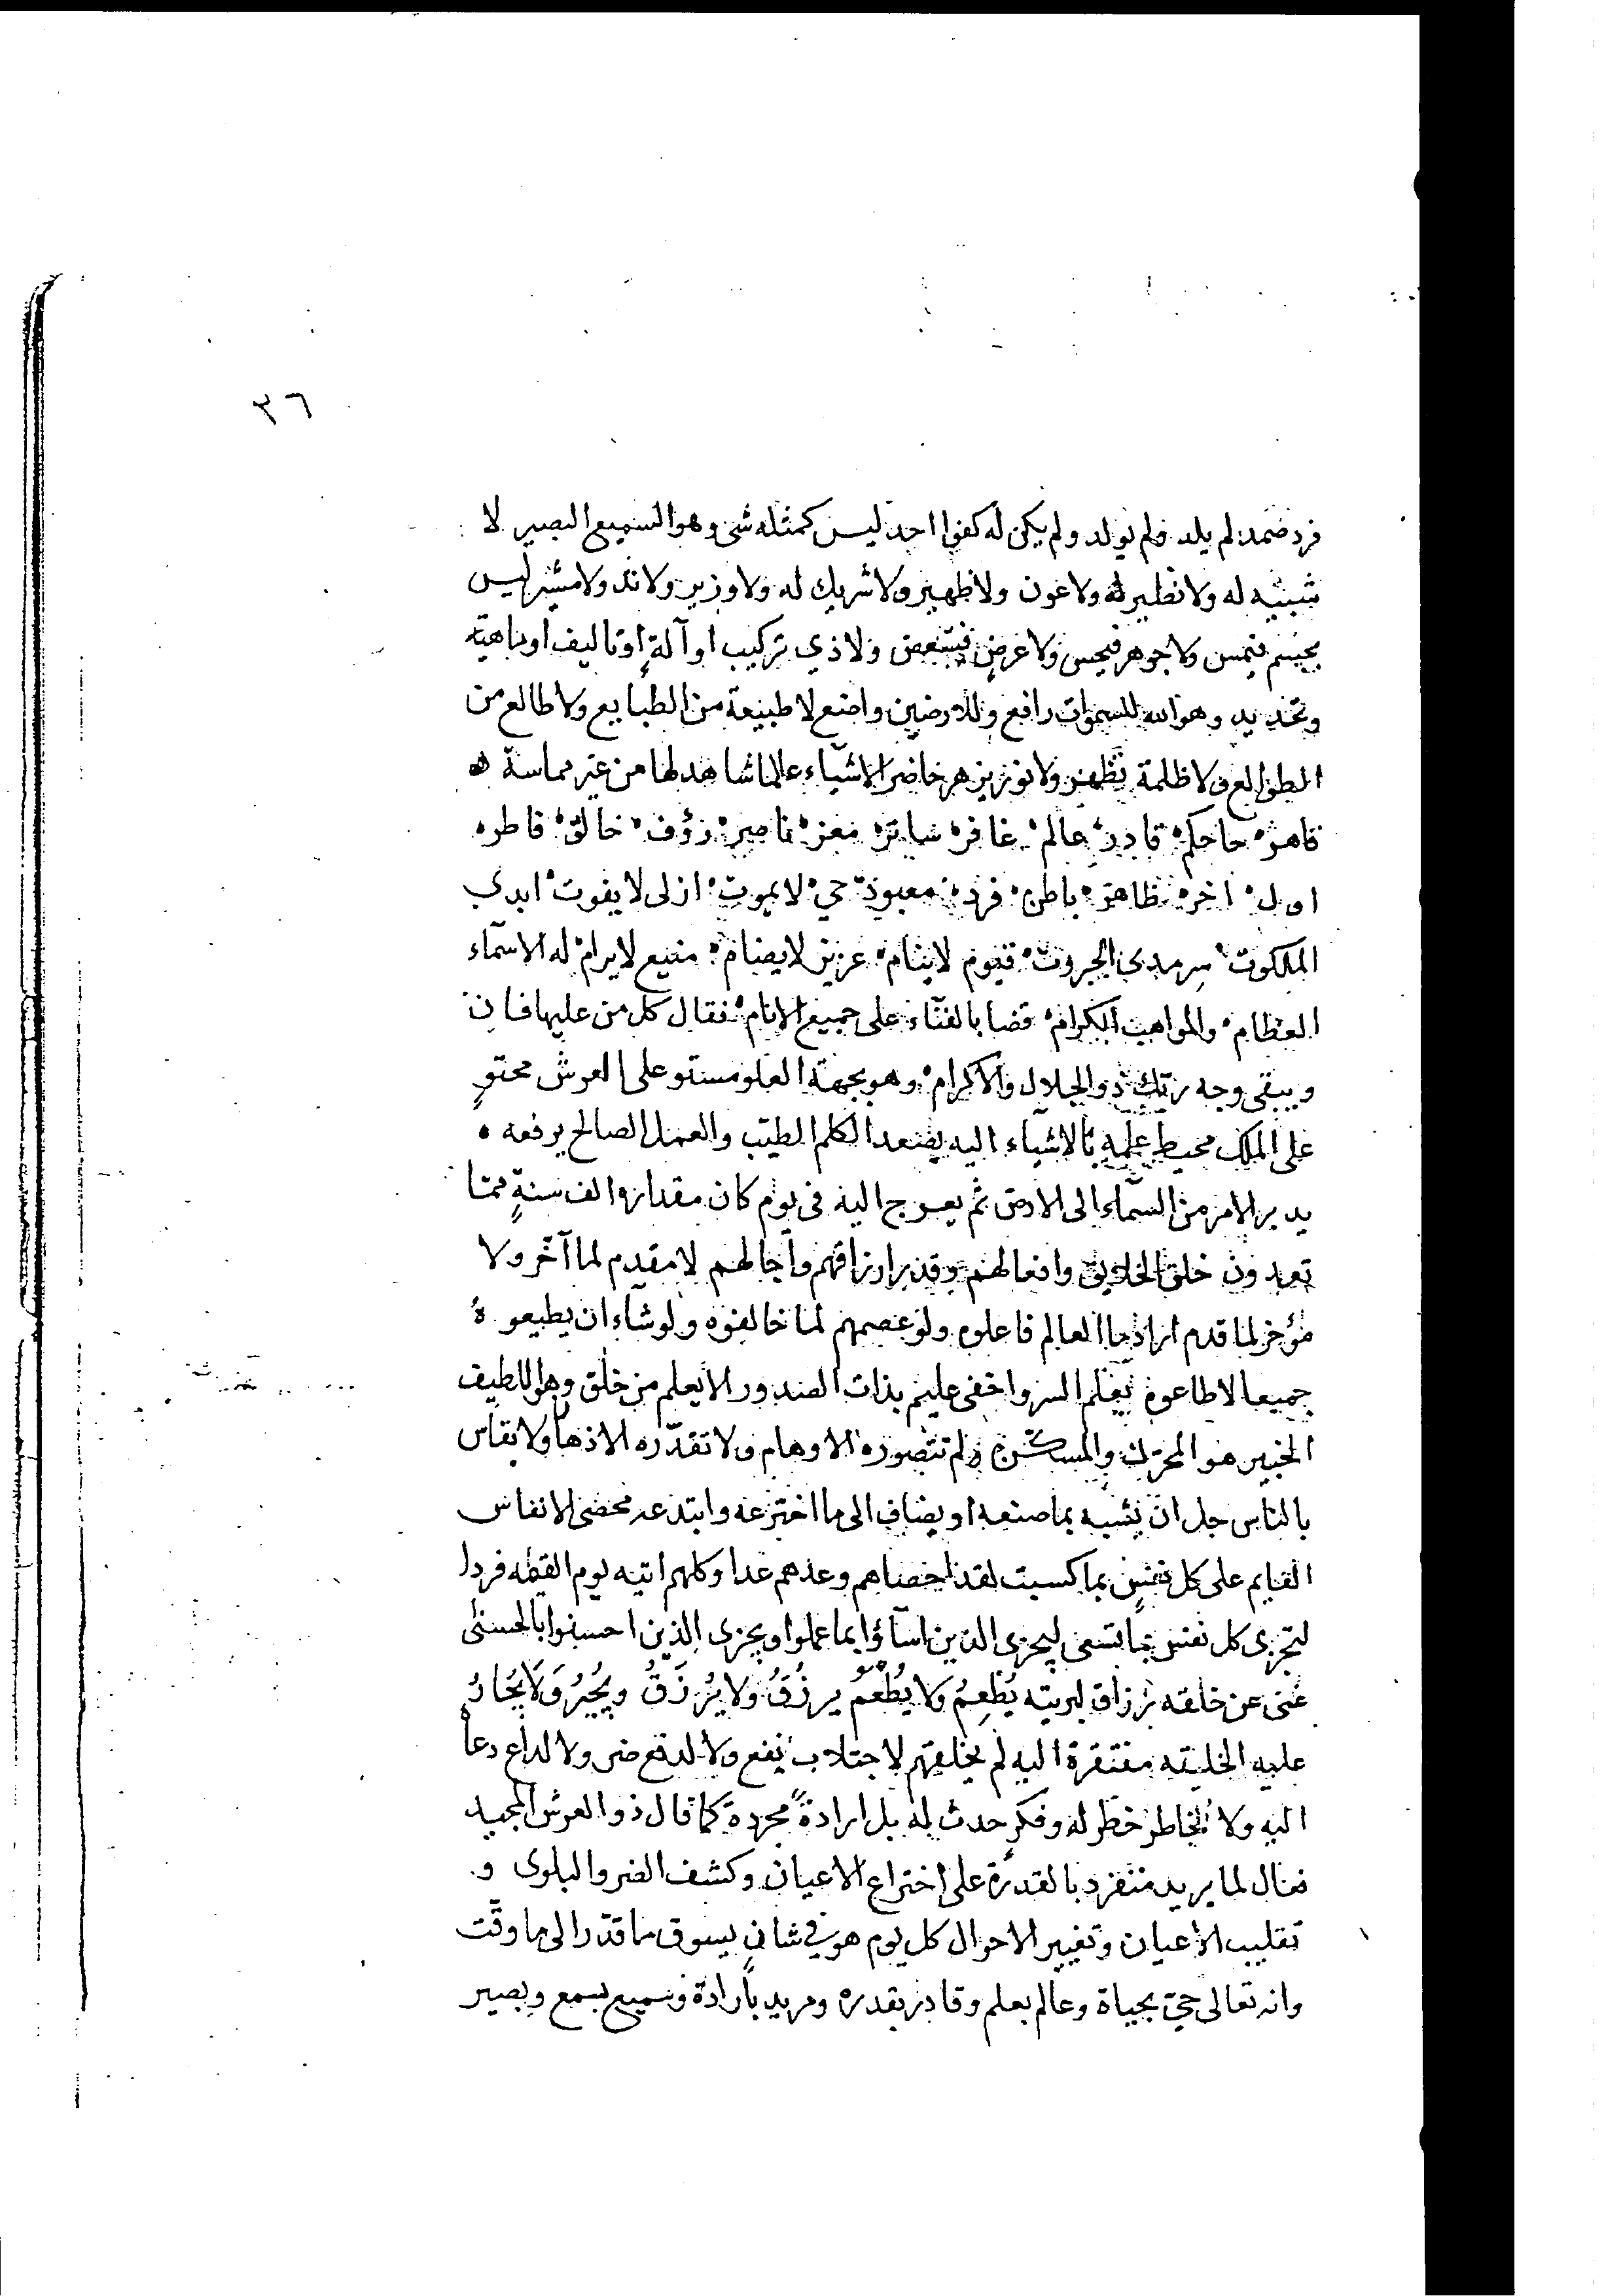 ٣٦
فرد صمد لم يلد ولم يولد ولم يكن له كفوا احد ليس كمثله شئ وهو السميع البصير لا
شبيه له ولا نظير له ولا عون ولا ظهير ولا شريك له ولا وزير ولا ند ولا مشير ليس
بجسم فيمس ولا جوهر فيحس ولا عرض فيتبعض ولا ذي تركيب او آلةٍ او تاليف او ماهية
وتحديد وهو الله للسموات رافع وللارضين واضع لا طبيعة من الطبايع ولا طالع من
الطوالع ولا ظلمة تظهر ولا نور يزهر حاضر الاشياء علما شاهد لها من غير مماسة ه
قاهر حاكم قادر عالم غافر ساتر معز ناصر رؤف خالق فاطر
اول اخر ظاهر باطن فرد معبود حي لا يموت ازلى لا يفوت ابدي
الملكوت سرمدي الجبروت قيوم لا ينام عزيز لا يضام منيع لا يرام له الاسمآء
العظام والمواهب الكرام قضا بالفنآء على جميع الانام فقال كل من عليها فان
ويبقى وجه ربك ذو الجلال والاكرام وهو بجهة العلو مستو على العرش محتوٍ
على الملك محيط علمه بالاشيآء اليه يصعد الكلم الطيب والعمل الصالح يرفعه
يدبر الامر من السمآء الى الارض ثم يعرج اليه فى يوم كان مقداره الف سنةٍ مما
تعدون خلق الخلايق وافعالهم وقدر ارزاقهم وآجالهم لا مقدم لما آخّر ولا
مؤخر لما قدم اراد ما العالم فاعلوه ولو عصمهم لما خالفوه ولو شآء ان يطيعوه
جميعا لاطاعوه يعلم السر واخفى عليم بذات الصدور الا يعلم من خلق وهو اللطيف
الخبير هو المحرك والمسكن ولم تتصوره الاوهام ولا تقدّره الاذهان ولا يقاس
بالناس جل ان يشبه بما صنعه او يضاف الى ما اخترعه وابتدعه محصى الانفاس
القايم على كل نفسٍ بما كسبت لقد احصاهم وعدهم عدا وكلهم اتيه يوم القيمه فردا
لتجزى كل نفس بما تسعى ليجزى الذين اسآؤا بما عملوا ويجزى الذين احسنوا بالحسنى
غنى عن خلقه رزاق لبريته يُطعِمُ ولا يُطْعَمُ يرزُقُ ولا يُرزَقُ ويُجيُرُ وَلَا يُجارُ
عليه الخليقه مفتقرة اليه لم يخلقهم لاجتلاب نفع ولا لدفع ضر ولا لداع دعا
اليه ولا لخاطر خطر له وفكرٍ حدث له بل ارادةً مجردة كما قال ذو العرش المجيد
فعال لما يريد متفرد بالقدرة على اختراع الاعيان وكشف الضر والبلوى و
تقليب الاعيان وتغيير الاحوال كل يوم هو في شانٍ يسوق ما قدّر الى ما وقّت
وانه تعالى حيّ بحياة وعالم بعلم وقادر بقدره ومريد بارادة وسميع بسمع وبصير